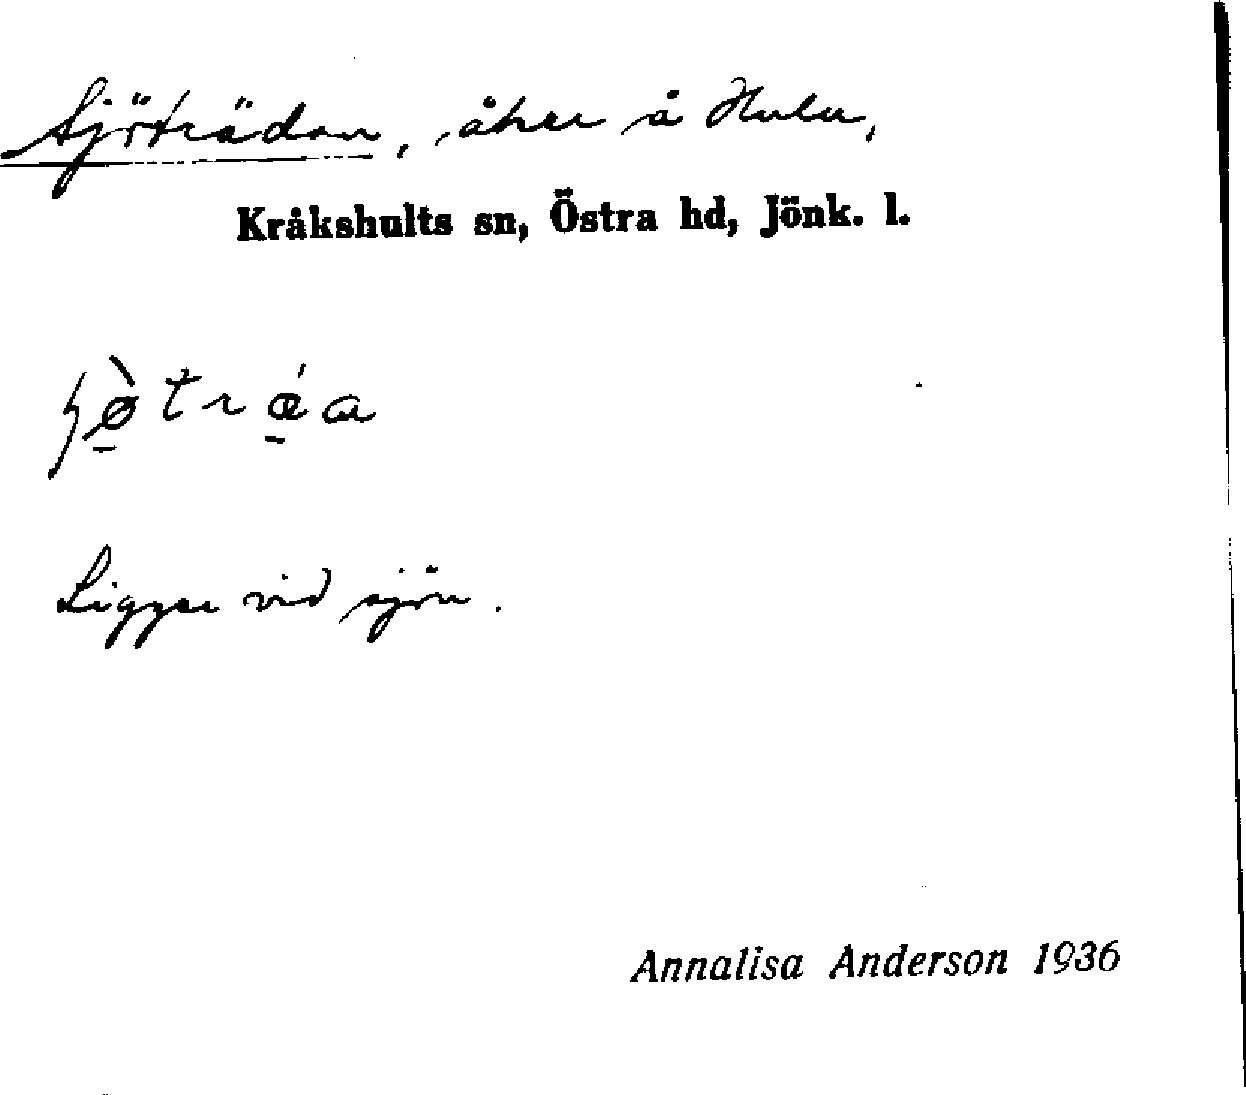 Sjöträdan, åker å Hulu,
Kråkshults sn, Östra hd, Jönk. l.
Ligger vid sjön.
Annalisa Anderson 1936